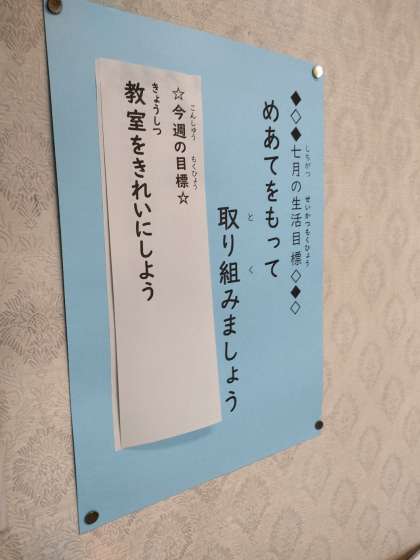 ◆◇◆七月の生活目標◇◆◇
しちがつ
せいかつもくひょう
めあてをもって
取り組みましょう
と
く
☆今週の目標☆
こんしゅう
もくひょう
教室をきれいにしよう
きょうしつ